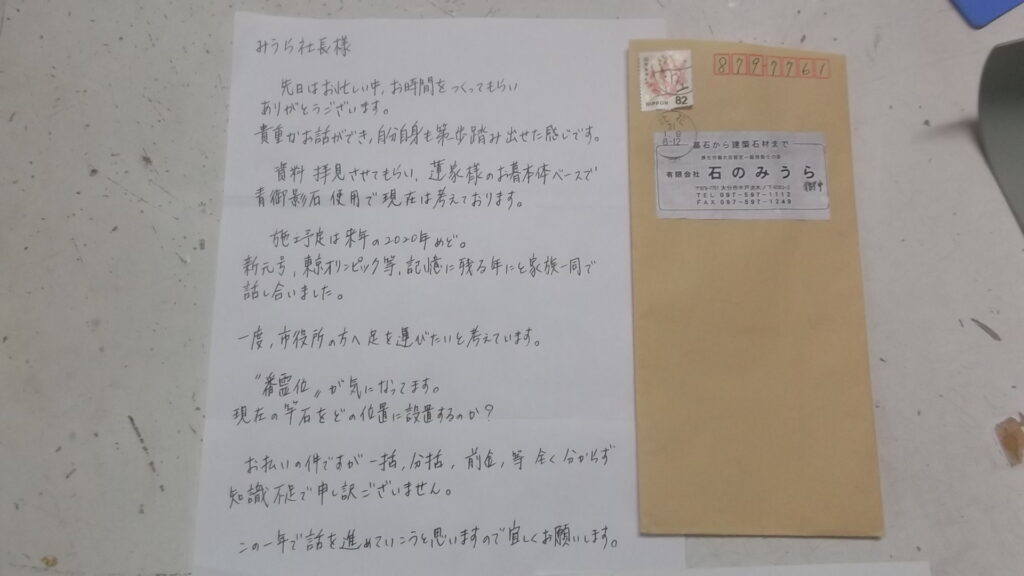 みうら社長様
先日はお忙しい中、お時間をつくってもらい
ありがとうございます。
貴重なお話ができ、自分自身も第一歩踏み出せた感じです。
資料拝見させてもらい、蓮家様のお墓本体ベースで
青御影石使用で現在は考えております。
施工予定は来年の2020年めど。
新元号、東京オリンピック等、記憶に残る年にと家族一同で
話し合いました。
一度、市役所の方へ足を運びたいと考えています。
"番霊位"が気になってます。
現在の竿石をどの位置に設置するのか?
お払いの件ですが一括、分括、前金、等全く分からず
知識不足で申し訳ございません。
この一年で話を進めていこうと思いますので宜しくお願いします。
8797761
NIPPON 82
墓石から建築石材まで
有限会社 石のみうら
TEL 097-597-1112
FAX 097-597-1249